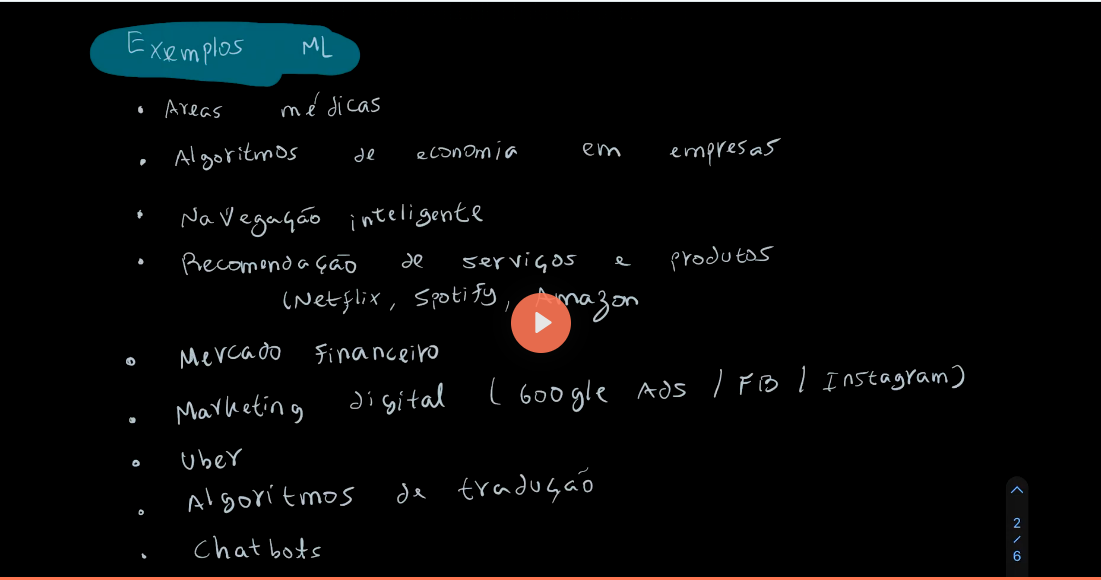 Exemplos ML
• Areas médicas
• Algoritmos de economia em empresas
• Navegação inteligente
• Recomendação de serviços e produtos
(Netflix, Spotify, Amazon
• Mercado Financeiro
• Marketing digital ( Google Ads / FB / Instagram)
• Uber
• Algoritmos de tradução
• Chatbots
2
/
6